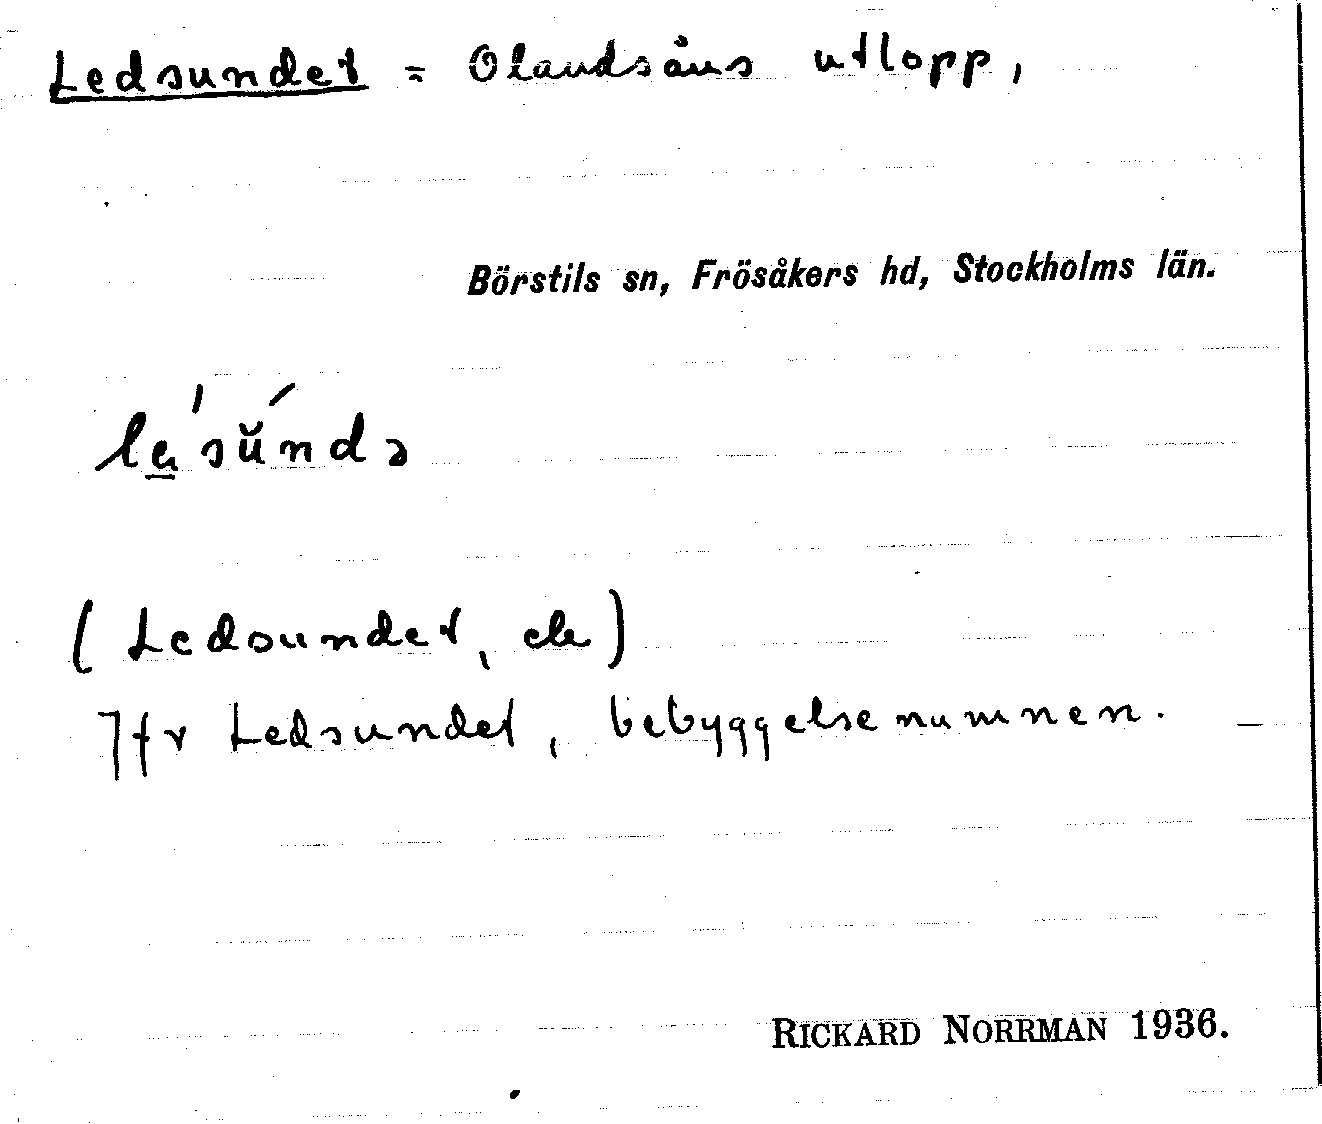 Ledsundet = Olandsåns utlopp,
Börstils sn, Frösåkers hd, Stockholms län.
(Ledsundet, ek)
Jfr Ledsundet, bebyggelsenamnen.
RICKARD NORRMAN 1936.